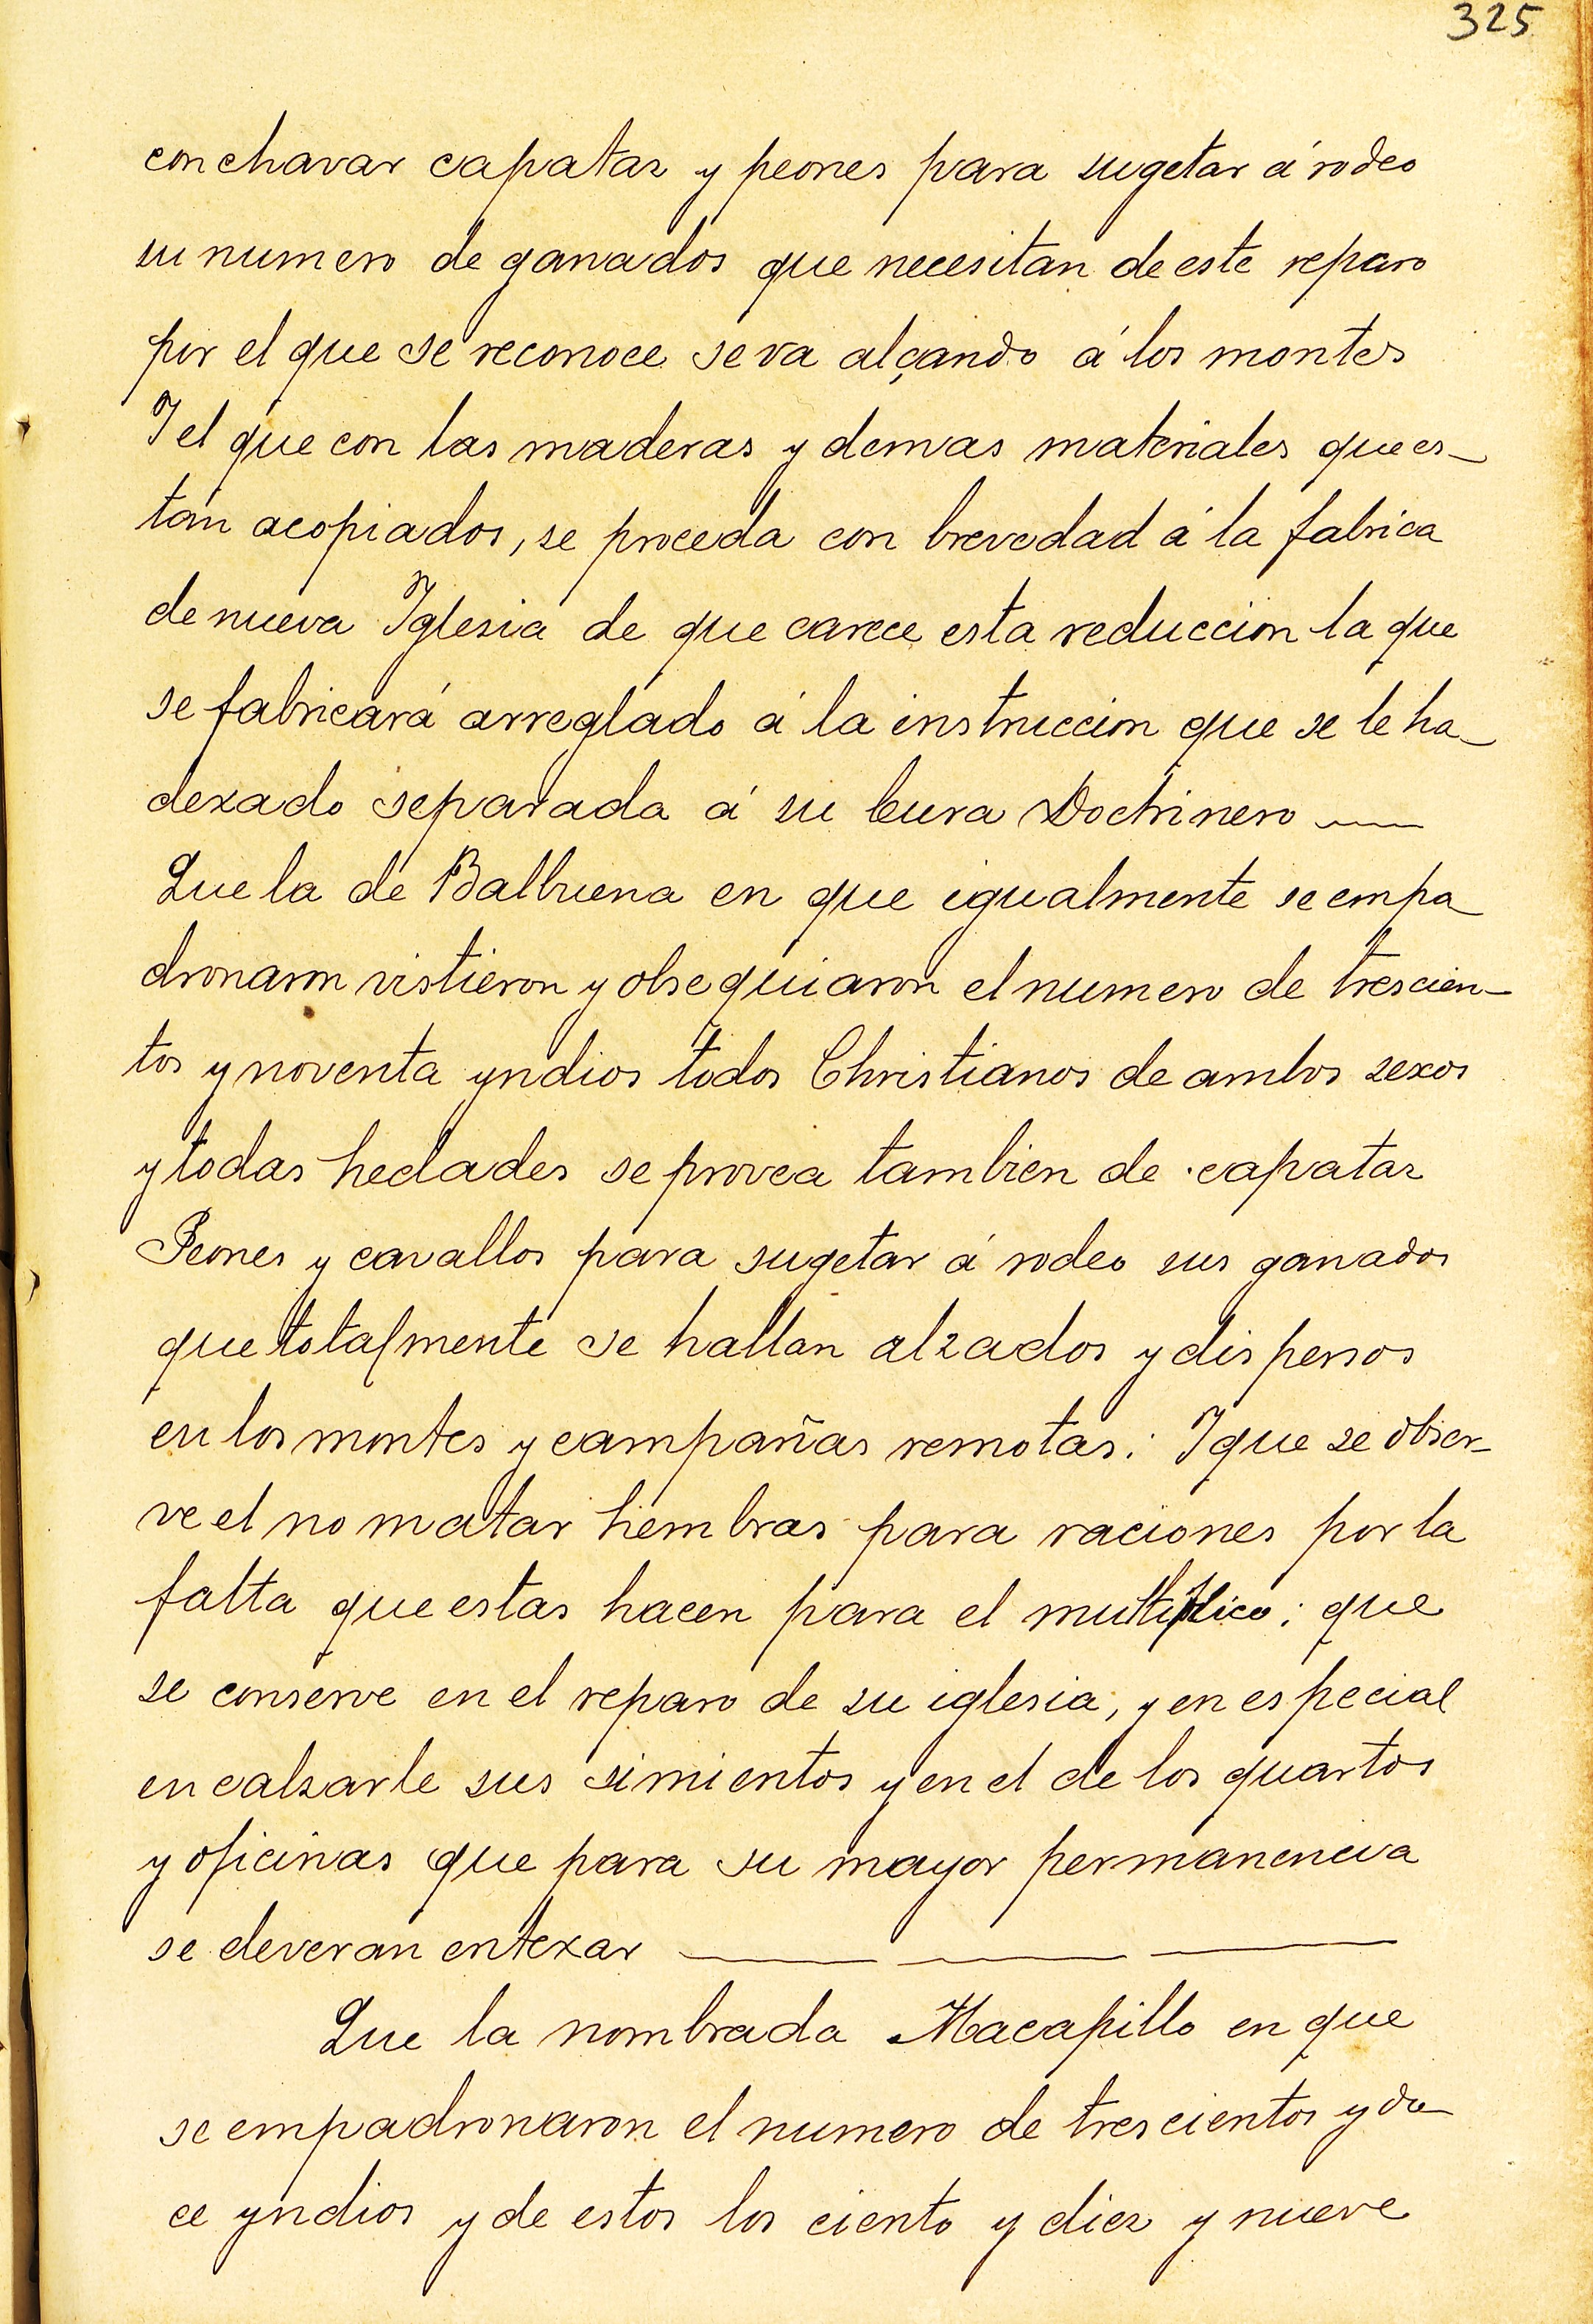 325
conchavar capataz y peones para sugetar á rodeo
su numero de ganados que necesitan de este reparo
por el que se reconoce se va alçando á los montes
I el que con las maderas y demas materiales que es-
tan acopiados, se proceda con brevedad á la fabrica
de nueva Iglesia de que carece esta reduccion la que
se fabricará arreglado á la instruccion que se le ha-
dexado separada á su Cura Doctrinero ——
Que la de Balbuena en que igualmente se empa-
dronaron vistieron y obsequiaron el numero de trescien-
tos y noventa yndios todos Christianos de ambos sexos
y todas hedades se provea tambien de capataz
Peones y cavallos para sugetar á rodeo sus ganados
que totalmente se hallan alzados y dispersos
en los montes y campañas remotas: I que se obser-
ve el no matar hembras para raciones por la
falta que estas hacen para el multiplico: que
se conserve en el reparo de su iglesia, y en especial
en calsarle sus simientos y en el de los quartos
y oficinas que para su mayor permanencia
se deveran entexar —— —— ——
Que la nombrada Macapillo en que
se empadronaron el numero de trescientos y do-
ce yndios y de estos los ciento y diez y nueve